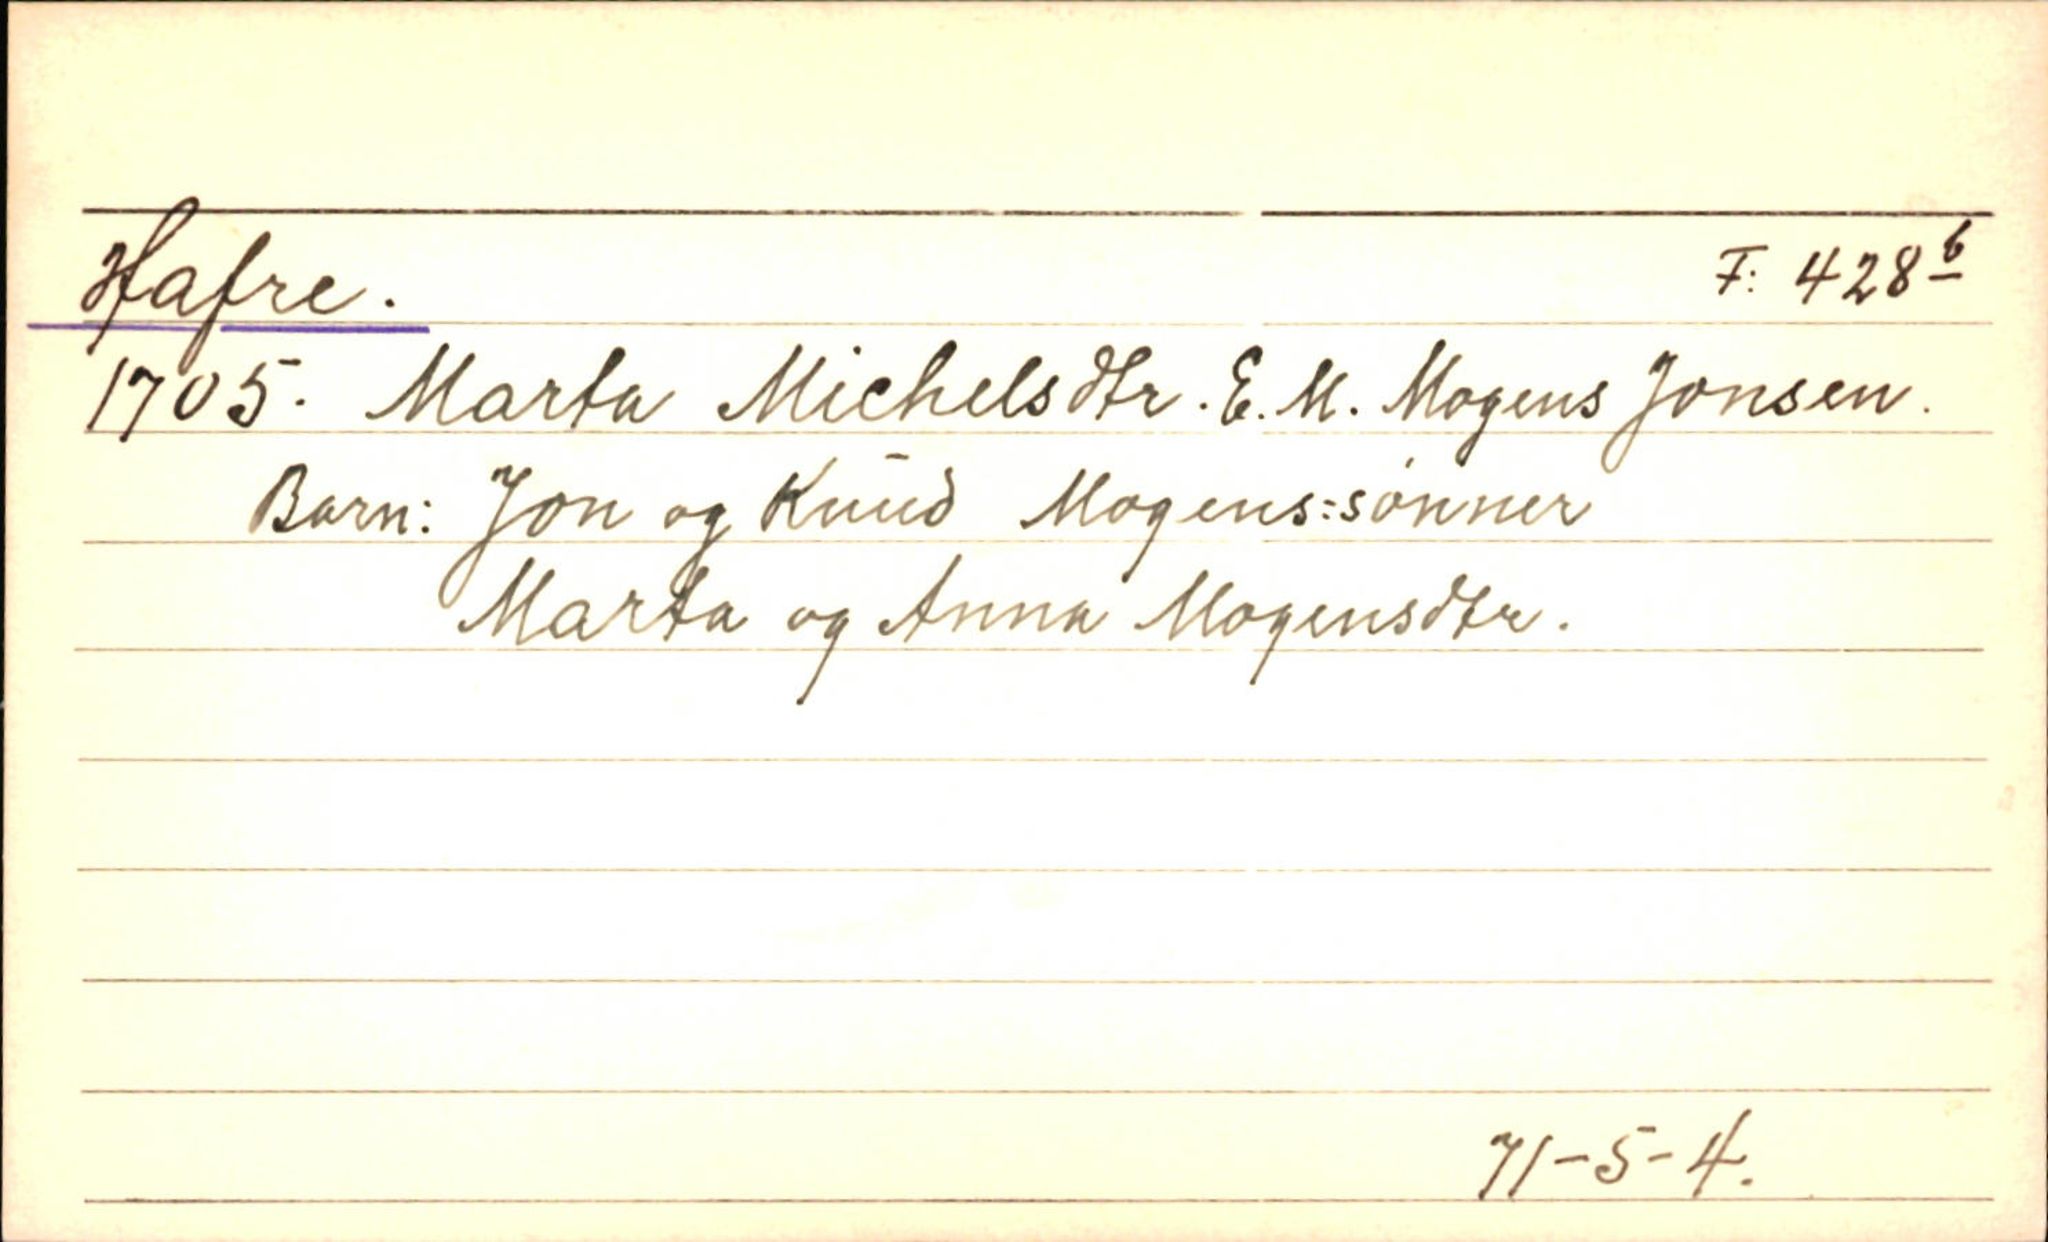 Hafre. F: 428b
1705. Marta Michelsdtr. E. M. Mogens Jonsen.
Barn: Jon og Knud Mogens:sønner
Marta og Anna Mogensdtr.
71-5-4.